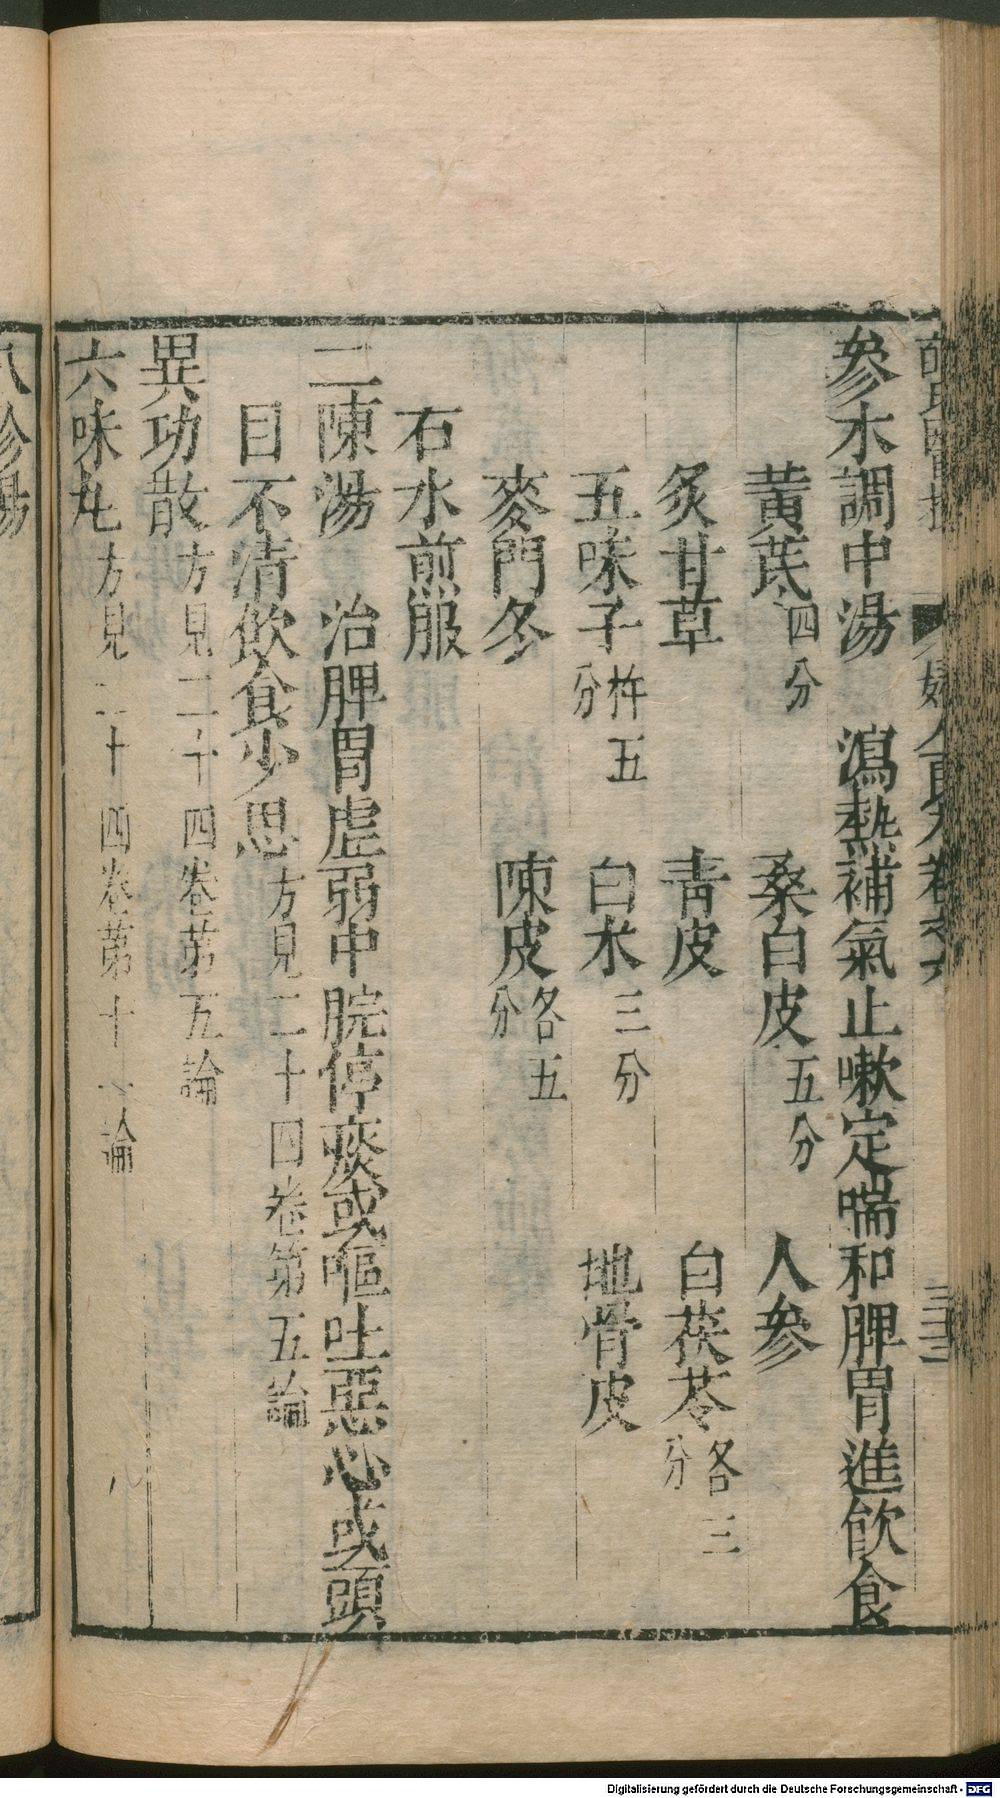 參朮調中湯　瀉熱補氣止嗽定喘和脾胃進飲食
黃芪四分　桑白皮五分　人參
炙甘草　青皮　白茯苓各三分
五味子杵五分　白朮三分　地骨皮
麥門冬　陳皮各五分
右水煎服
二陳湯　治脾胃虛弱中脘停痰或嘔吐惡心或頭
目不清飲食少思方見二十四卷第五論
異功散方見二十四卷第五論
六味丸方見二十四卷第十　論
Digitalisierung gefördert durch die Deutsche Forschungsgemeinschaft - DFG